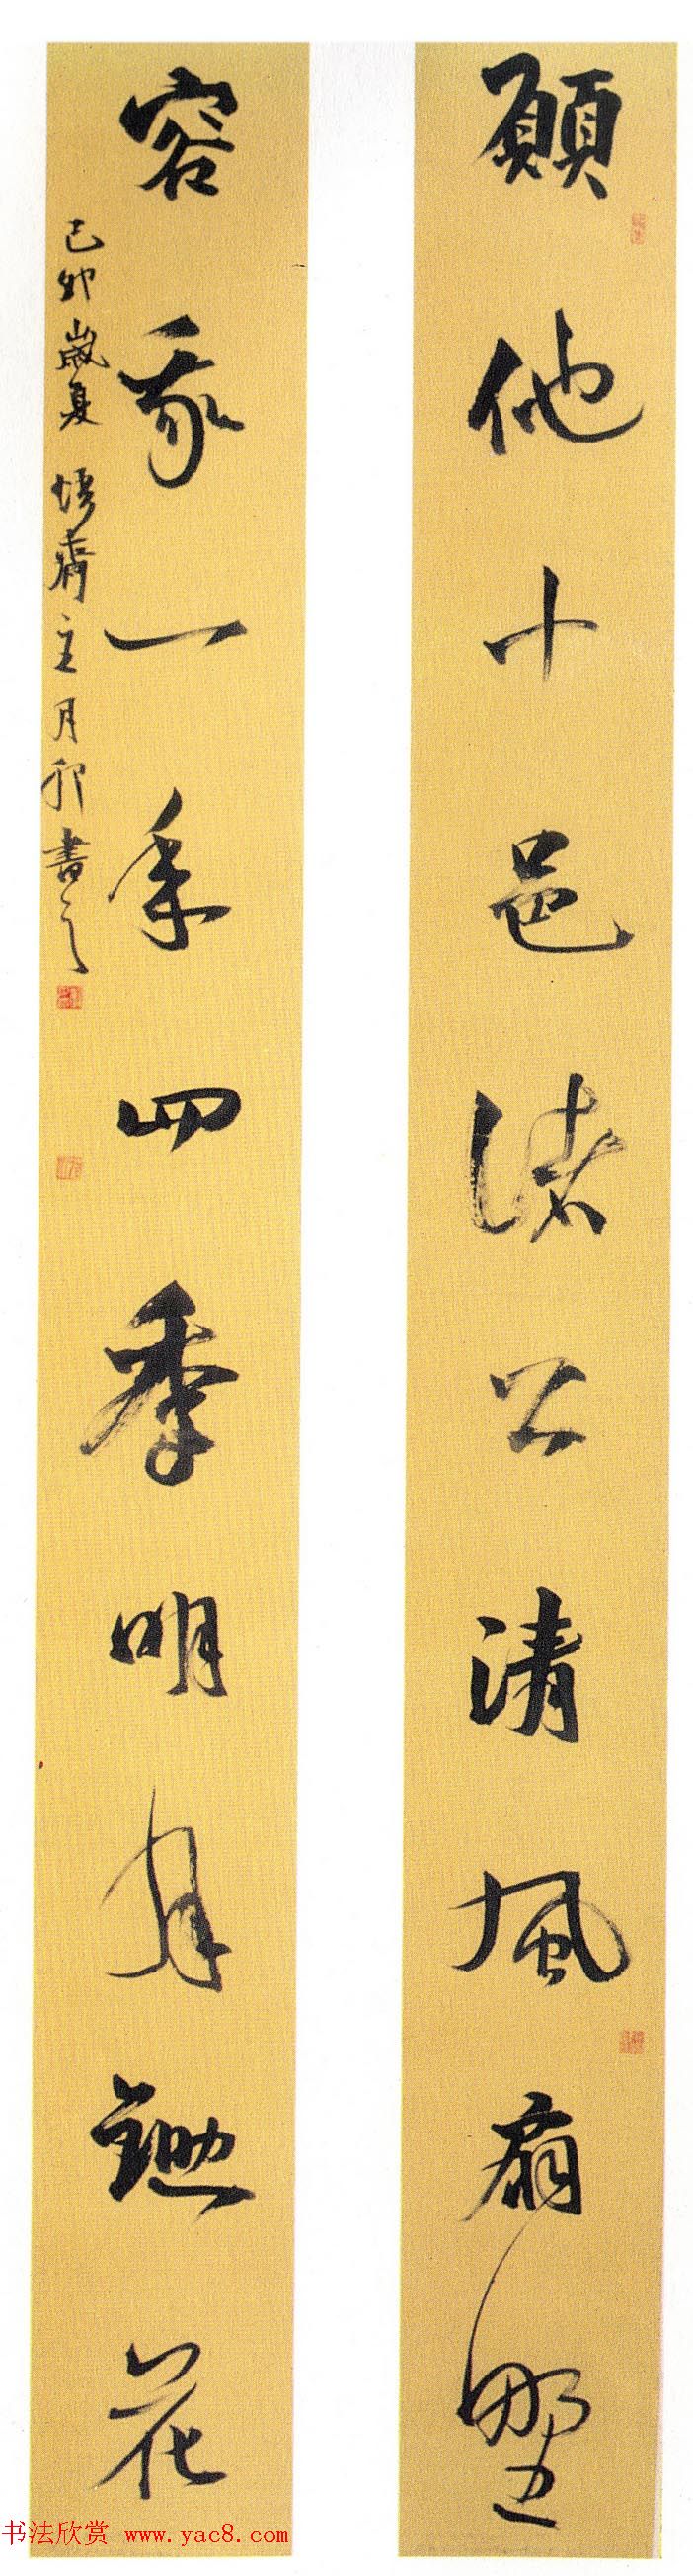 願他十邑诸公清風扇野
容我一年四季明月鋤花
己卯歲夏 齋主月卯書之
书法欣赏 www.yac8.com